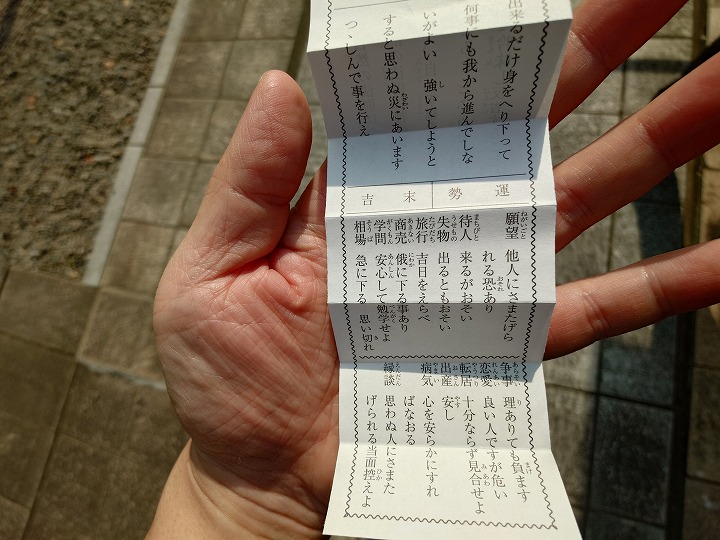 出来るだけ身をへり下って
何事にも我から進んでしな
いがよい 強いてしようと
すると思わぬ災にあいます
つゝしんで事を行え
運勢 末吉
願望 他人にさまたげら
れる恐あり
待人 来るがおそい
失物 出るともおそい
旅行 吉日をえらべ
商売 俄に下る事あり
学問 安心して勉学せよ
相場 急に下る 思い切れ
争事 理ありても負ます
恋愛 良い人ですが危い
転居 十分ならず見合せよ
出産 安し
病気 心を安らかにすれ
ばなおる
縁談 思わぬ人にさまた
げられる当面控えよ